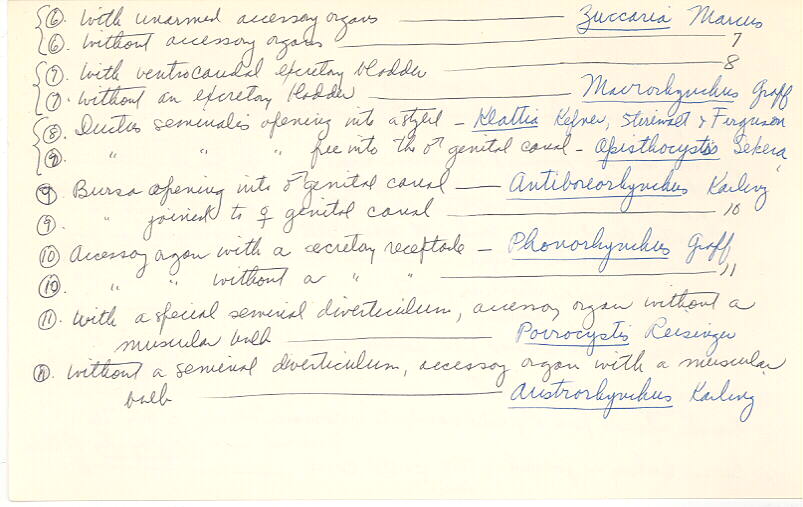 ⑥. With unarmed accessory organs — Zuccaria Marcus
⑥. Without accessory organs — 7
⑦. With ventrocaudal excretory bladder — 8
⑦. Without an excretory bladder — Macrorhynchus Graff
⑧. Ductus seminalis opening into a stylet — Klattia Kepner, Stirewalt & Ferguson
⑧. " " " free into the ♂ genital canal — Opisthocystis Sekera
⑨. Bursa opening into ♂ genital canal — Antiboreorhynchus Karling
⑨. " joined to ♀ genital canal — 10
⑩ Accessory organ with a secretory receptacle — Phonorhynchus Graff
⑩. " " without a " " — 11
⑪. With a special seminal diverticulum, accessory organ without a
muscular bulb — Porrocystis Reisinger
⑪. Without a seminal diverticulum, accessory organ with a muscular
bulb — Austrorhynchus Karling